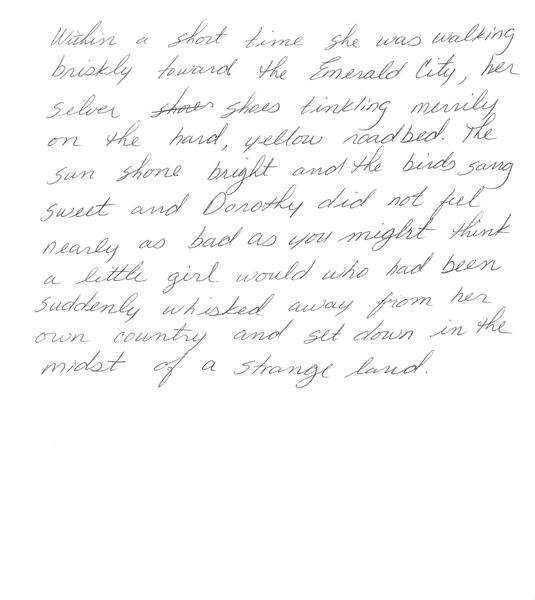 Within a short time she was walking
briskly toward the Emerald City, her
silver shoes tinkling merrily
on the hard, yellow roadbed. The
sun shone bright and the birds sang
sweet and Dorothy did not feel
nearly as bad as you might think
a little girl would who had been
suddenly whisked away from her
own country and set down in the
midst of a strange land.